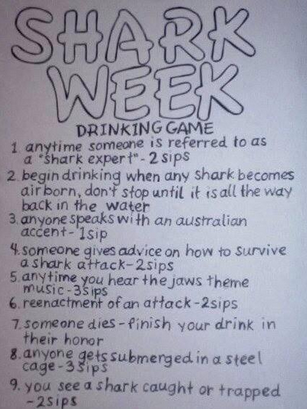 SHARK
WEEK
DRINKING GAME
1. anytime someone is referred to as
a "shark expert"- 2 sips
2 begin drinking when any shark becomes
airborn, don't stop until it is all the way
back in the water
3. anyone speaks with an australian
accent- 1sip
4. someone gives advice on how to survive
a shark attack-2sips
5. anytime you hear the jaws theme
music-3sips
6. reenactment of an attack-2sips
7. someone dies-finish your drink in
their honor
8. anyone gets submerged in a steel
cage-3sips
9. you see a shark caught or trapped
-2sips